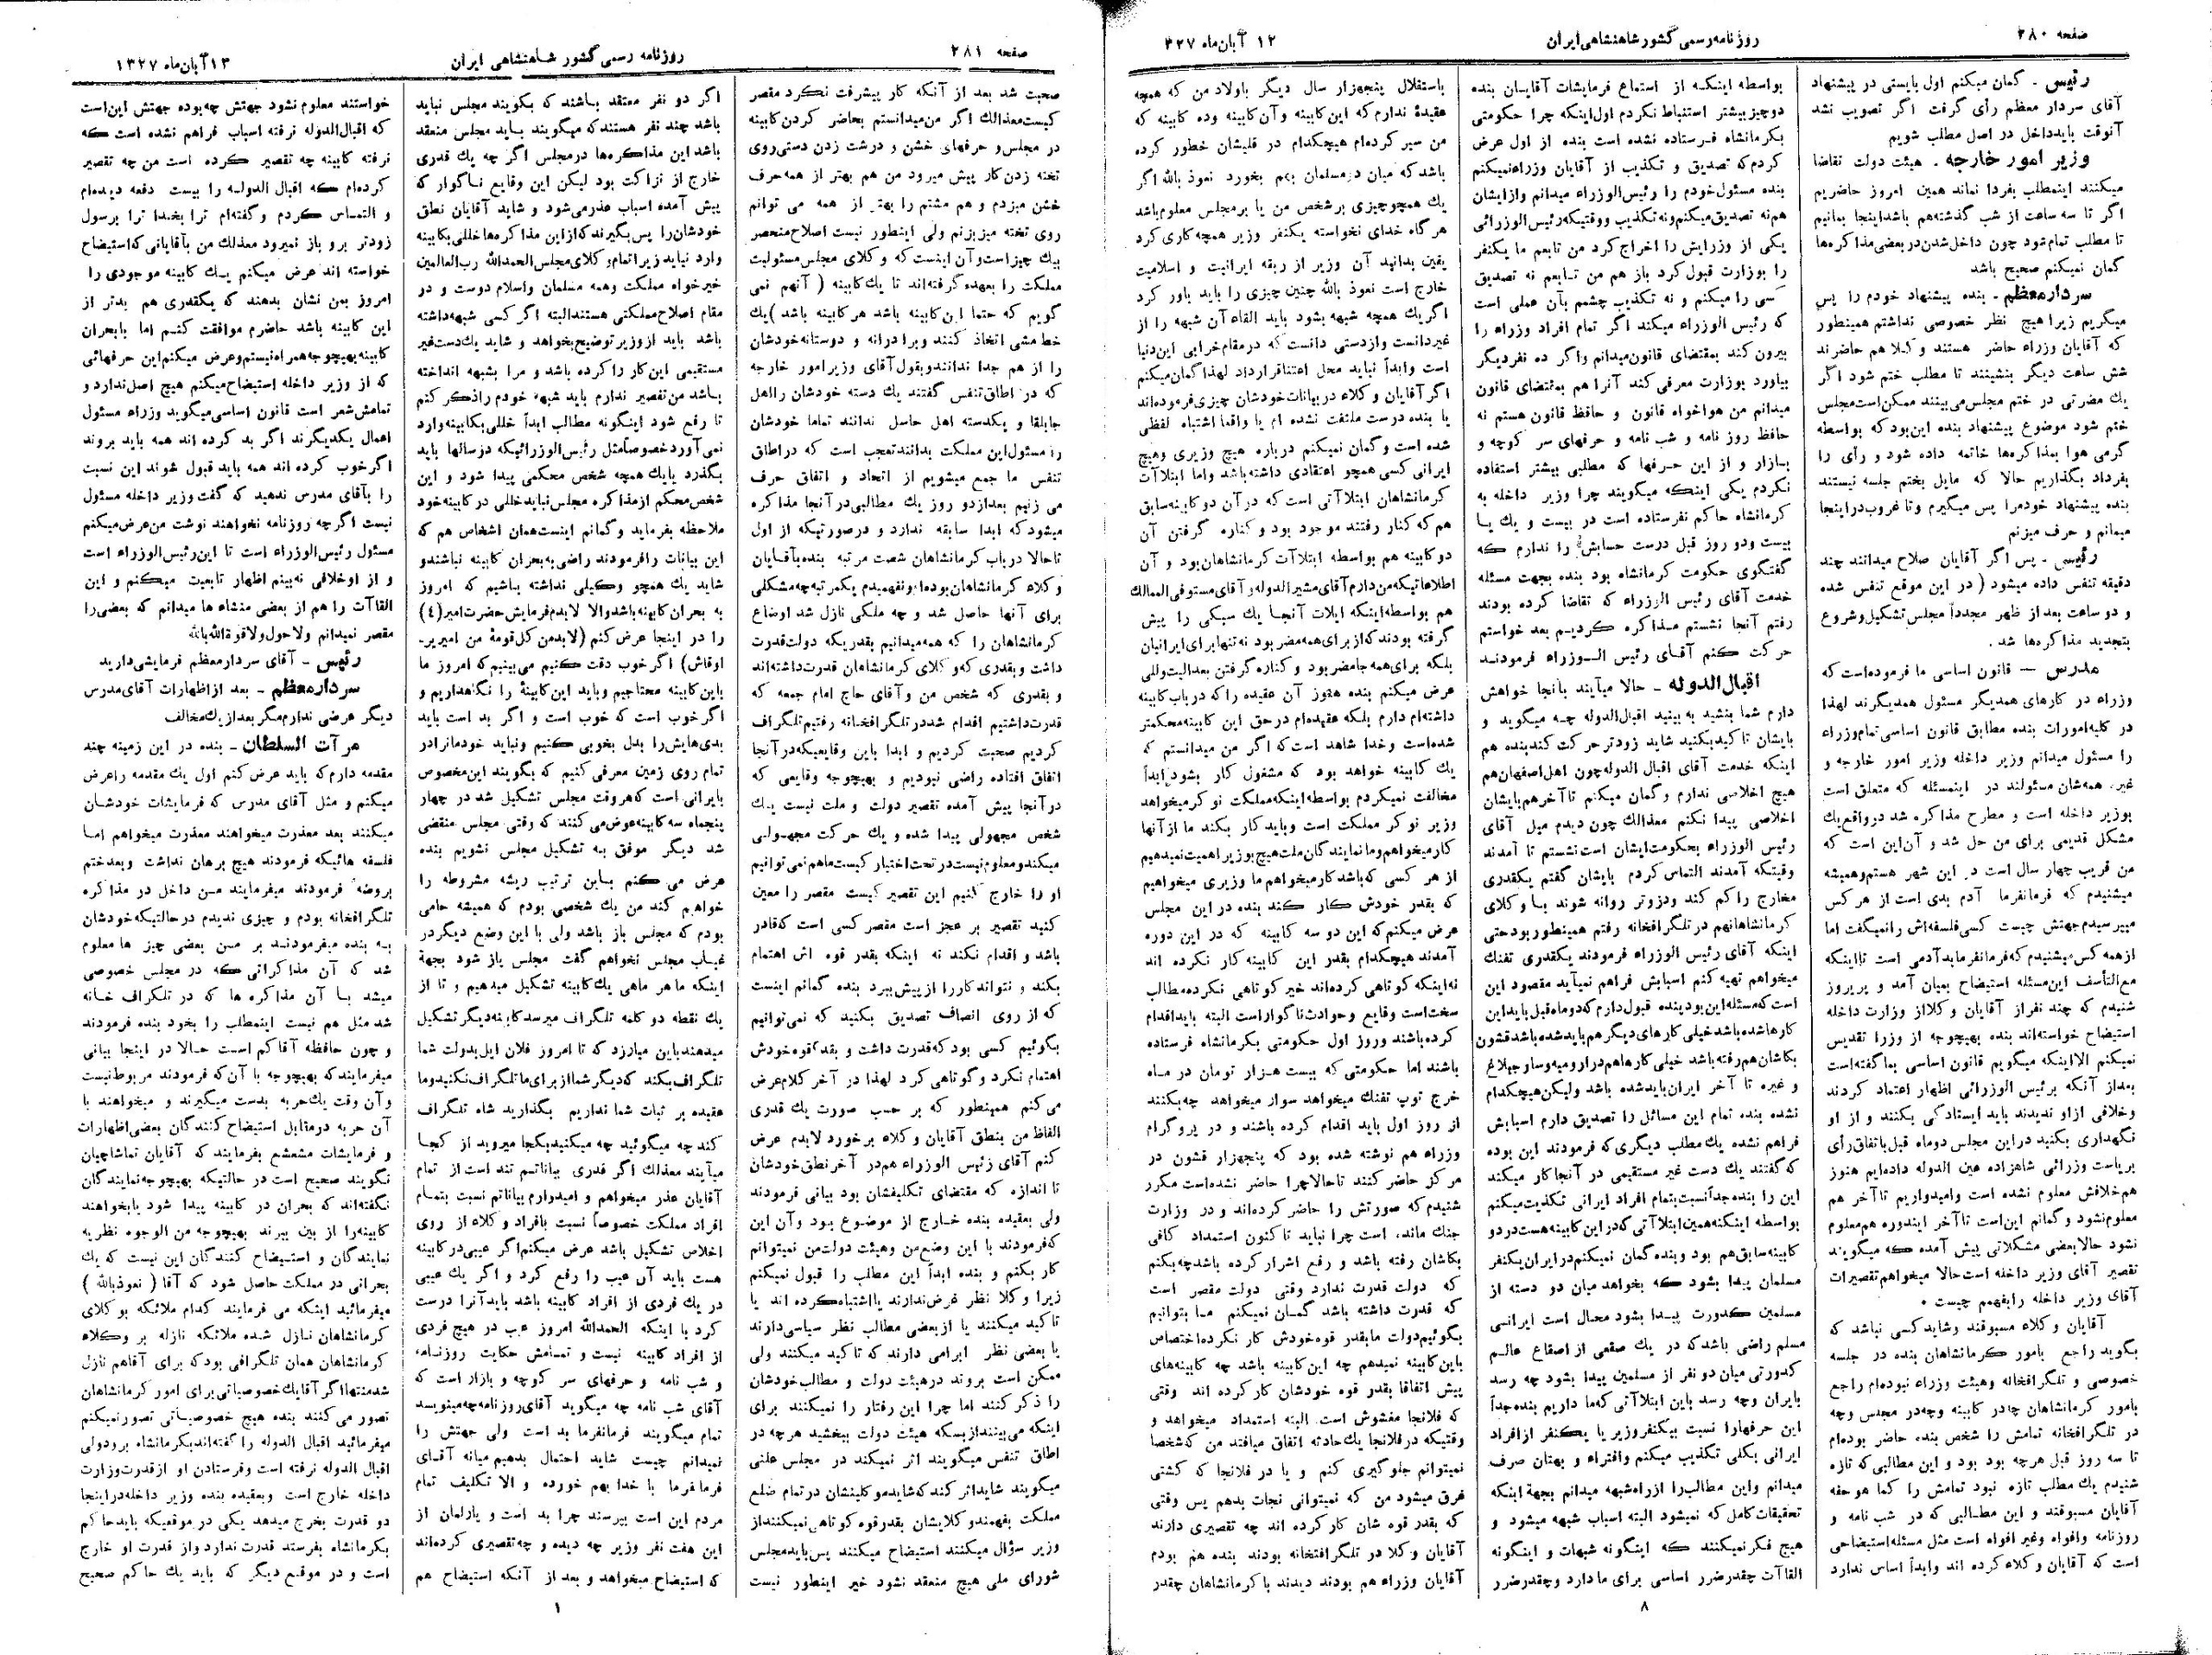 صفحه ۲۸۰
روزنامه رسمی کشور شاهنشاهی ایران
۱۲ آبان‌ماه ۳۲۷
رئیس ـ گمان میکنم اول بایستی در پیشنهاد
آقای سردار معظم رأی گرفت اگر تصویب نشد
آنوقت باید داخل در اصل مطلب شویم
وزیر امور خارجه ـ هیئت دولت تقاضا
میکنند اینمطلب بفردا نماند همین امروز حاضریم
اگر تا سه ساعت از شب گذشته هم باشد اینجا بمانیم
تا مطلب تمام شود چون داخل شدن در بعضی مذاکره‌ها
گمان نمیکنم صحیح باشد
سردار معظم ـ بنده پیشنهاد خودم را پس
میگریم زیرا هیچ نظر خصوصی نداشتم همینطور
که آقایان وزراء حاضر هستند و کلا هم حاضرند
شش ساعت دیگر بنشینند تا مطلب ختم شود اگر
یك مضرتی در ختم مجلس می‌بینند ممکن است مجلس
ختم شود موضوع پیشنهاد بنده این بود که بواسطه
گرمی هوا بمذاکره‌ها خاتمه داده شود و رأی را
بفرداد بگذاریم حالا که مایل بختم جلسه نیستند
بنده پیشنهاد خودم را پس میگیرم و تا غروب در اینجا
میمانم و حرف میزنم
رئیس ـ پس اگر آقایان صلاح میدانند چند
دقیقه تنفس داده میشود ( در این موقع تنفس شده
و دو ساعت بعد از ظهر مجدداً مجلس تشکیل و شروع
بتجدید مذاکره‌ها شد .
مدرس — قانون اساسی ما فرموده است که
وزراء در کارهای همدیگر مسئول همدیگرند لهذا
در کلیه امورات بنده مطابق قانون اساسی تمام وزراء
را مسئول میدانم وزیر داخله وزیر امور خارجه و
غیره همه‌شان مسئولند در اینمسئله که متعلق است
بوزیر داخله است و مطرح مذاکره شد در واقع یك
مشکل قدیمی برای من حل شد و آن این است که
من قریب چهار سال است در این شهر هستم و همیشه
میشنیدم که فرمانفرما آدم بدی است از هر کس
میپرسیدم جهتش چیست کسی فلسفه‌اش را نمیگفت اما
از همه کس میشنیدم که فرمانفرما بد آدمی است تا اینکه
مع‌التأسف این مسئله استیضاح بمیان آمد و پریروز
شنیدم که چند نفر از آقایان و کلا از وزارت داخله
استیضاح خواسته‌اند بنده بهیچوجه از وزرا تقدیس
نمیکنم الا اینکه میگویم قانون اساسی بما گفته است
بعد از آنکه برئیس الوزرائی اظهار اعتماد کردند
و خلافی از او ندیدند باید ایستادگی بکنند و از او
نگهداری بکنید در این مجلس دو ماه قبل با تفاق رأی
بریاست وزرائی شاهزاده عین الدوله داده‌ایم هنوز
هم خلافش معلوم نشده است و امیدواریم تا آخر هم
معلوم نشود و گمانم این است تا آخر ایندوره هم معلوم
نشود حالا بعضی مشکلاتی پیش آمده که میگویند
تقصیر آقای وزیر داخله است حالا میخواهم تقصیرات
آقای وزیر داخله را بفهمم چیست .
آقایان و کلاء مسبوقند و شاید کسی نباشد که
بگوید راجع بامور کرمانشاهان بنده در جلسه
خصوصی و تلگرافخانه و هیئت وزراء نبوده‌ام راجع
بامور کرمانشاهان چه در کابینه و چه در مجلس و چه
در تلگرافخانه تمامش را شخص بنده حاضر بوده‌ام
تا سه روز قبل هر چه بود بود و این مطالبی که تازه
شنیدم یك مطلب تازه نبود تمامش را کما هو حقه
آقایان مسبوقند و این مطالبی که در شب نامه و
روزنامه و افواه و غیر افواه است مثل مسئله استیضاحی
است که آقایان و کلاء کرده اند و ابداً اساس ندارد
بواسطه اینکه از استماع فرمایشات آقایان بنده
دو چیز بیشتر استنباط نکردم اول اینکه چرا حکومتی
بکرمانشاه فرستاده نشده است بنده از اول عرض
کردم که تصدیق و تکذیب از آقایان وزراء نمیکنم
بنده مسئول خودم را رئیس‌الوزراء میدانم و از ایشان
هم نه تصدیق میکنم و نه تکذیب و وقتیکه رئیس الوزرائی
یکی از وزرایش را اخراج کرد من تابعم ما یکنفر
را بوزارت قبول کرد باز هم من تابعم نه تصدیق
کسی را میکنم و نه تکذیب چشمم بآن عملی است
که رئیس الوزراء میکند اگر تمام افراد وزراء را
بیرون کند بمقتضای قانون میدانم و اگر ده نفر دیگر
بیاورد بوزارت معرفی کند آنرا هم بمقتضای قانون
میدانم من هوا خواه قانون و حافظ قانون هستم نه
حافظ روزنامه و شب نامه و حرفهای سر کوچه و
بازار و از این حرفها که مطلبی بیشتر استفاده
نکردم یکی اینکه میگویند چرا وزیر داخله به
کرمانشاه حاکم نفرستاده است در بیست و یك یا
بیست و دو روز قبل درست حسابش را ندارم که
گفتگوی حکومت کرمانشاه بود بنده بجهت مسئله
خدمت آقای رئیس الوزراء که تقاضا کرده بودند
رفتم آنجا نشستم مذاکره کردیم بعد خواستم
حرکت کنم آقای رئیس الوزراء فرمودند
اقبال الدوله ـ حالا میآیند بآنجا خواهش
دارم شما بنشید به بینید اقبال‌الدوله چه میگوید و
بایشان تاکید بکنید شاید زودتر حرکت کند بنده هم
اینکه خدمت آقای اقبال الدوله چون اهل اصفهان هم
هیچ اخلاصی ندارم و گمان میکنم تا آخر هم بایشان
اخلاصی پیدا نکنم معذالك چون دیدم میل آقای
رئیس الوزراء بحکومت ایشان است نشستم تا آمدند
وقتیکه آمدند التماس کردم بایشان گفتم یکقدری
مخارج را کم کند و زودتر روانه شوند با و کلای
کرمانشاهانهم در تلگرافخانه رفتم همینطور بود حتی
اینکه آقای رئیس الوزراء فرمودند یکقدری تفنك
میخواهم تهیه کنم اسبابش فراهم نمیآید مقصود این
است که مسئله این بود بنده قبول دارم که دو ماه قبل باید این
کارها شده باشد خیلی کارهای دیگر هم باید شده باشد قشون
بکاشان هم رفته باشد خیلی کارها هم در ارومیه و ساوجبلاغ
و غیره تا آخر ایران باید شده باشد ولیکن هیچکدام
نشده بنده تمام این مسائل را تصدیق دارم اسبابش
فراهم نشده یك مطلب دیگری که فرمودند این بوده
که گفتند یك دست غیر مستقیمی در آنجا کار میکند
این را بنده جداً نسبت بتمام افراد ایرانی تکذیب میکنم
بواسطه اینکه همین ابتلا آتی که در این کابینه هست در دو
کابینه سابق هم بود و بنده گمان نمیکنم در ایران یکنفر
مسلمان پیدا بشود که بخواهد میان دو دسته از
مسلمین کدورت پیدا بشود محال است ایرانی
مسلم راضی باشد که در یك صقعی از اصقاع عالم
کدورتی میان دو نفر از مسلمین پیدا بشود چه رسد
بایران و چه رسد باین ابتلا آتی که ما داریم بنده جداً
این حرفها را نسبت بیکنفر وزیر یا یکنفر از افراد
ایرانی بکلی تکذیب میکنم و افتراء و بهتان صرف
میدانم و این مطالب را از راه شبهه میدانم بجهة اینکه
تحقیقات کامل که نمیشود البته اسباب شبهه میشود و
هیچ فکر نمیکنند که اینگونه شبهات و اینگونه
القاآت چقدر ضرر اساسی برای ما دارد و چقدر ضرر
باستقلال پنجهزار سال دیگر باولاد من که همچه
عقیدۀ ندارم که این کابینه و آن کابینه و ده کابینه که
من سیر کرده‌ام هیچکدام در قلبشان خطور کرده
باشد که میان دو مسلمان بهم بخورد نعوذ بالله اگر
یك همچو چیزی بر شخص من یا بر مجلس معلوم باشد
هر گاه خدای نخواسته یکنفر وزیر همچه کاری کرد
یقین بدانید آن وزیر از ربقه ایرانیت و اسلامیت
خارج است نعوذ بالله چنین چیزی را باید باور کرد
اگر یك همچه شبهه بشود باید القاء آن شبهه را از
غیر دانست و از دستی دانست که در مقام خرابی این دنیا
است و ابداً نباید محل اعتنا قرار داد لهذا گمان میکنم
اگر آقایان و کلاء در بیانات خودشان چیزی فرموده‌اند
یا بنده درست ملتفت نشده ام یا واقعا اشتباه لفظی
شده است و گمان نمیکنم درباره هیچ وزیری و هیچ
ایرانی کسی همچو اعتقادی داشته باشد و اما ابتلا آت
کرمانشاهان ابتلا آتی است که در آن دو کابینه سابق
هم که کنار رفتند موجود بود و کناره گرفتن آن
دو کابینه هم بواسطه ابتلا آت کرمانشاهان بود و آن
اطلاعاتیکه من دارم آقای مشیر الدوله و آقای مستوفی الممالك
هم بواسطه اینکه ایلات آنجا یك سبکی را پیش
گرفته بودند که از برای همه مضر بود نه تنها برای ایرانیان
بلکه برای همه جا مضر بود و کناره گرفتن بعد الیت و للی
عرض میکنم بنده هنوز آن عقیده را که در باب کابینه
داشته‌ام دارم بلکه عقیده‌ام در حق این کابینه محکمتر
شده‌است و خدا شاهد است که اگر من میدانستم که
یك کابینه خواهد بود که مشغول کار بشود ابداً
مخالفت نمیکردم بواسطه اینکه مملکت نوکر میخواهد
وزیر نوکر مملکت است و باید کار بکند ما از آنها
کار میخواهم و ما نمایندگان ملت هیچ بوزیر اهمیت نمیدهیم
از هر کسی که باشد کار میخواهم ما وزیری میخواهیم
که بقدر خودش کار کند بنده در این مجلس
عرض میکنم که این دو سه کابینه که در این دوره
آمدند هیچکدام بقدر این کابینه کار نکرده اند
نه اینکه کوتاهی کرده‌اند خیر کوتاهی نکرده مطالب
سخت‌است وقایع و حوادث ناگوار است البته باید اقدام
کرده باشند و روز اول حکومتی بکرمانشاه فرستاده
باشند اما حکومتی که بیست هزار تومان در ماه
خرج توپ تفنك میخواهد سوار میخواهد چه بکنند
از روز اول باید اقدام کرده باشند و در پروگرام
وزراء هم نوشته شده بود که پنجهزار قشون در
مرکز حاضر کنند تا حالا چرا حاضر نشده است مکرر
شنیدم که صورتش را حاضر کرده‌اند و در وزارت
جنك مانده است چرا نباید تا کنون استمداد کافی
بکاشان رفته باشد و رفع اشرار کرده باشد چه بکنم
که دولت قدرت ندارد وقتی دولت مقصر است
که قدرت داشته باشد گمان نمیکنم ما بتوانیم
بگوئیم دولت ما بقدر قوه خودش کار نکرده اختصاص
باین کابینه نمیدهم چه این کابینه باشد چه کابینه‌های
پیش اتفاقا بقدر قوه خودشان کار کرده اند وقتی
که فلانجا مغشوش است البته استمداد میخواهد و
وقتیکه در فلانجا یك حادثه اتفاق میافتد من که شخصا
نمیتوانم جلوگیری کنم و یا در فلانجا که کشتی
غرق میشود من که نمیتوانی نجات بدهم پس وقتی
که بقدر قوه شان کار کرده اند چه تقصیری دارند
آقایان و کلا در تلگرافتخانه بودند بنده هم بودم
آقایان وزراء هم بودند دیدند با کرمانشاهان چقدر
۸
صفحه ۲۸۱
روزنامه رسمی کشور شاهنشاهی ایران
۱۳ آبان‌ماه ۱۳۲۷
صحبت شد بعد از آنکه کار پیشرفت نکرد مقصر
کیست معذالك اگر من میدانستم بحاضر کردن کابینه
در مجلس و حرفهای خشن و درشت زدن دستی روی
تخته زدن کار پیش میرود من هم بهتر از همه حرف
خشن میزدم و هم مشتم را بهتر از همه می توانم
روی تخته میزبزنم ولی اینطور نیست اصلاح منحصر
بیك چیز است و آن اینست که و کلای مجلس مسئولیت
مملکت را بعهده گرفته‌اند تا یك کابینه ( آنهم نمی
گویم که حتما این کابینه باشد هر کابینه باشد ) یك
خط مشی اتخاذ کنند و برادرانه و دوستانه خودشان
را از هم جدا ندانند و بقول آقای وزیر امور خارجه
که در اطاق تنفس گفتند یك دسته خودشان را اهل
جابلقا و یکدسته اهل جابلسا ندانند تماما خودشان
را مسئول این مملکت بدانند تعجب است که در اطاق
تنفس ما جمع میشویم از اتحاد و اتفاق حرف
می زنیم بعد از دو روز یك مطالبی در آنجا مذاکره
میشود که ابدا سابقه ندارد و در صورتیکه از اول
تا حالا در باب کرمانشاهان شصت مرتبه بنده با آقایان
و کلاء کرمانشاهان بوده‌ام و نفهمیدم یکمرتبه چه مشکلی
برای آنها حاصل شد و چه ملکی نازل شد اوضاع
کرمانشاهان را که همه میدانیم بقدریکه دولت قدرت
داشت و بقدری که و کلای کرمانشاهان قدرت داشته‌اند
و بقدری که شخص من و آقای حاج امام جمعه که
قدرت داشتیم اقدام شد در تلگرافخانه رفتیم تلگراف
کردیم صحبت کردیم و ابدا باین وقایعیکه در آنجا
اتفاق افتاده راضی نبودیم و بهیچوجه وقایعی که
در آنجا پیش آمده تقصیر دولت و ملت نیست یك
شخص مجهولی پیدا شده و یك حرکت مجهولی
میکند و معلوم نیست در تحت اختیار کیست ما هم نمی توانیم
او را خارج کنیم این تقصیر کیست مقصر را معین
کنید تقصیر بر عجز است مقصر کسی است که قادر
باشد و اقدام نکند نه اینکه بقدر قوه اش اهتمام
بکند و نتواند کار را از پیش ببرد بنده گمانم اینست
که از روی انصاف تصدیق بکنید که نمی‌توانیم
بگوئیم کسی بود که قدرت داشت و بقدر قوه خودش
اهتمام نکرد و کوتاهی کرد لهذا در آخر کلام عرض
می کنم همینطور که بر حسب صورت یك قدری
الفاظ من بنطق آقایان و کلاء برخورد لابدم عرض
کنم آقای رئیس الوزراء هم در آخر نطق خودشان
تا اندازه که مقتضای تکلیفشان بود بیانی فرمودند
ولی بعقیده بنده خارج از موضوع بود و آن این
که فرمودند با این وضع من و هیئت دولت من نمیتوانم
کار بکنم و بنده ابداً این مطلب را قبول نمیکنم
زیرا و کلا نظر غرض ندارند یا اشتباه کرده اند یا
تاکید میکنند یا از بعضی مطالب نظر سیاسی دارند
یا بعضی نظر ابرامی دارند که تاکید میکنند ولی
ممکن است بروند در هیئت دولت و مطالب خودشان
را ذکر کنند اما چرا این رفتار را نمیکنند برای
اینکه می‌بینند از بسکه هیئت دولت ببخشید هر چه در
اطاق تنفس میگویند اثر نمیکند در مجلس علنی
میگویند شاید اثر کند که شاید موکلینشان در تمام ضلع
مملکت بفهمند و کلایشان بقدر قوه کوتاهی نمیکنند از
وزیر سؤال میکنند استیضاح میکنند پس باید مجلس
شورای ملی هیچ منعقد نشود خیر اینطور نیست
اگر دو نفر معتقد باشند که بگویند مجلس نباید
باشد چند نفر هستند که میگویند باید مجلس منعقد
باشد این مذاکره‌ها در مجلس اگر چه یك قدری
خارج از نزاکت بود لیکن این وقایع ناگوار که
پیش آمده اسباب عذر می‌شود و شاید آقایان نطق
خودشان را پس بگیرند که از این مذاکره‌ها خللی بکابینه
وارد نیاید زیرا تمام و کلای مجلس الحمد‌الله رب العالمین
خیر خواه مملکت و همه مسلمان و اسلام دوست و در
مقام اصلاح مملکتی هستند البته اگر کسی شبهه داشته
باشد باید از وزیر توضیح بخواهد و شاید یك دست غیر
مستقیمی این کار را کرده باشد و مرا بشبهه انداخته
باشد من تقصیر ندارم باید شبهه خودم را ذکر کنم
تا رفع شود اینگونه مطالب ابداً خللی بکابینه وارد
نمی آورد خصوصاً مثل رئیس الوزرائیکه در سالها باید
بگذرد یا یك همچه شخص محکمی پیدا شود و این
شخص محکم از مذاکره مجلس نباید خللی در کابینه خود
ملاحظه بفرماید و گمانم اینست همان اشخاص هم که
این بیانات را فرمودند راضی به بحران کابینه نباشند و
شاید یك همچو وکیلی نداشته باشیم که امروز
به بحران کابینه باشد و الا لابدم فرمایش حضرت امیر (٤)
را در اینجا عرض کنم (لابد من کل قومۀ من امیر بر ـ
اوفاش) اگر خوب دقت کنیم می‌بینیم که امروز ما
باین کابینه محتاجیم و باید این کابینۀ را نگاهداریم و
اگر خوب است که خوب است و اگر بد است باید
بدی‌هایش را بدل بخوبی کنیم و نباید خودمان را در
تمام روی زمین معرفی کنیم که بگویند این مخصوص
بایرانی است که هر وقت مجلس تشکیل شد در چهار
پنجماه سه کابینه عوض می کنند که وقتی مجلس منقضی
شد دیگر موفق به تشکیل مجلس نشویم بنده
عرض می کنم باین ترتیب ریشه مشروطه را
خواهیم کند من یك شخصی بودم که همیشه حامی
بودم که مجلس باز باشد ولی با این وضع دیگر در
غیاب مجلس نخواهم گفت مجلس باز شود بجهة
اینکه ما هر ماهی یك کابینه تشکیل میدهیم و تا از
یك نقطه دو کلمه تلگراف میرسد کابینه دیگر تشکیل
میدهند باین میارزد که تا امروز فلان ایل بدولت شما
تلگراف بکند که دیگر شما از برای ما تلگراف نکنید و ما
عقیده بر ثبات شما نداریم بگذارید شاه تلگراف
کند چه میگوئید چه میکنید بکجا میروید از کجا
میآیند معذلك اگر قدری بیاناتم تند است از تمام
آقایان عذر میخواهم و امیدوارم بیاناتم نسبت بتمام
افراد مملکت خصوصاً نسبت بافراد و کلاء از روی
اخلاص تشکیل باشد عرض میکنم اگر عیبی در کابینه
هست باید آن عیب را رفع کرد و اگر یك عیبی
در یك فردی از افراد کابینه باشد باید آنرا درست
کرد با اینکه الحمدالله امروز عیب در هیچ فردی
از افراد کابینه نیست و تمامش حکایت روزنامه
و شب نامه و حرفهای سر کوچه و بازار است که
آقای شب نامه چه میگوید آقای روزنامه چه مینویسد
تمام میگویند فرمانفرما بد است ولی جهتش را
نمیدانم چیست شاید احتمال بدهیم میانه آقای
فرمانفرما با خدا بهم خورده و الا تکلیف تمام
مردم این است بپرسند چرا بد است و پارلمان از
این هفت نفر وزیر چه دیده و چه تقصیری کرده‌اند
که استیضاح میخواهد و بعد از آنکه استیضاح هم
خواستند معلوم نشود جهتش چه بوده جهتش این است
که اقبال‌الدوله نرفته اسباب فراهم نشده است که
نرفته کابینه چه تقصیر کرده است من چه تقصیر
کرده‌ام که اقبال الدوله را بیست دفعه دیده‌ام
و التماس کردم و گفته‌ام ترا بخدا ترا برسول
زودتر برو باز نمیرود معذلك من بآقایانی که استیضاح
خواسته اند عرض میکنم یك کابینه موجودی را
امروز بمن نشان بدهند که یکقدری هم بدتر از
این کابینه باشد حاضرم موافقت کنم اما با بحران
کابینه بهیچوجه همراه نیستم و عرض میکنم این حرفهائی
که از وزیر داخله استیضاح میکنم هیچ اصل ندارد و
تمامش شعر است قانون اساسی میگوید وزراء مسئول
اعمال یکدیگرند اگر بد کرده اند همه باید بروند
اگر خوب کرده اند همه باید قبول شوند این نسبت
را بآقای مدرس ندهید که گفت وزیر داخله مسئول
نیست اگر چه روزنامه نخواهند نوشت من عرض میکنم
مسئول رئیس الوزراء است تا این رئیس الوزراء است
و از او خلافی نه بینم اظهار تابعیت میکنم و این
القاآت را هم از بعضی منشاء ها میدانم که بعضی را
مقصر نمیدانم ولا حول ولا قوة الا بالله
رئیس ـ آقای سردار معظم فرمایشی دارید
سردار معظم ـ بعد از اظهارات آقای مدرس
دیگر عرضی ندارم مگر بعد از یك مخالف
مرآت السلطان ـ بنده در این زمینه چند
مقدمه دارم که باید عرض کنم اول یك مقدمه را عرض
میکنم و مثل آقای مدرس که فرمایشات خودشان
میکنند بعد معذرت میخواهند معذرت میخواهم اما
فلسفه هائیکه فرمودند هیچ برهان نداشت و بعد ختم
بروضه فرمودند میفرمایند من داخل دو مذاکره
تلگرافخانه بودم و چیزی ندیدم در حالتیکه خودشان
به بنده میفرمودند بر من بعضی چیز ها معلوم
شد که آن مذاکراتی که در مجلس خصوصی
میشد با آن مذاکره ها که در تلگراف خانه
شد مثل هم نیست اینمطلب را بخود بنده فرمودند
و چون حافظه آقا کم است حالا در اینجا بیانی
میفرمایند که بهیچوجه با آن که فرمودند مربوط نیست
و آن وقت یك حربه بدست میگیرند و میخواهند با
آن حربه در مقابل استیضاح کنندگان بعضی اظهارات
و فرمایشات مشعشع بفرمایند که آقایان تماشاچیان
نگویند صحیح است در حالتیکه بهیچوجه نمایندگان
نگفته‌اند که بحران در کابینه پیدا شود یا بخواهند
کابینه را از بین ببرند بهیچوجه من الوجوه نظریه
نمایندگان و استیضاح کنندگان این نیست که یك
بحرانی در مملکت حاصل شود که آقا ( نعوذ بالله )
میفرمائید اینکه می فرمایند کدام ملائکه بو کلای
کرمانشاهان نازل شده ملائکه نازله بر و کلاء
کرمانشاهان همان تلگرافی بود که برای آقا هم نازل
شد منتها اگر آقا یك خصوصیاتی برای امور کرمانشاهان
تصور می کنند بنده هیچ خصوصیاتی تصور نمیکنم
میفرمائید اقبال الدوله را گفته‌اند بکرمانشاه برود ولی
اقبال الدوله نرفته است و فرستادن او از قدرت وزارت
داخله خارج است و بعقیده بنده وزیر داخله در اینجا
دو قدرت بخرج میدهد یکی در موقعیکه باید حاکم
بکرمانشاه بفرستد قدرت ندارد و از قدرت او خارج
است و در موقع دیگر که باید یك حاکم صحیح
۱